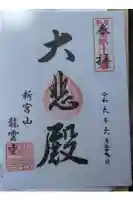 奉拝
令和六年六月
大悲殿
新宮山
龍雲寺